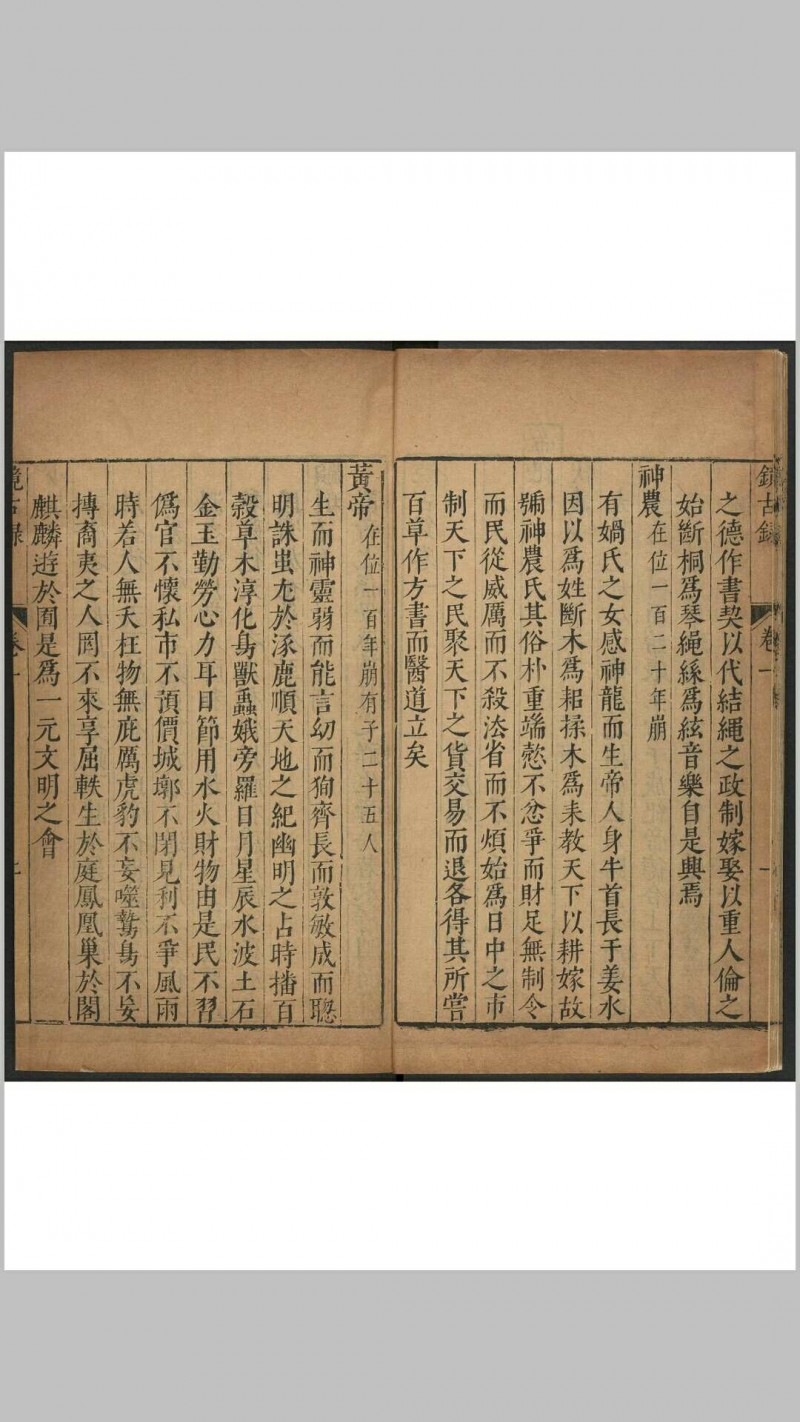 鏡古録 卷一 一
之德作書契以代結繩之政制嫁娶以重人倫之
始斷桐為琴繩絲為絃音樂自是興焉
神農在位一百二十年崩
有媧氏之女感神龍而生帝人身牛首長于姜水
因以為姓斷木為耜揉木為耒教天下以耕嫁故
號神農氏其俗朴重端愨不忿爭而財足無制令
而民從威厲而不殺法省而不煩始為日中之市
制天下之民聚天下之貨交易而退各得其所嘗
百草作方書而醫道立矣
黃帝在位一百年崩有子二十五人
生而神靈弱而能言幼而狥齊長而敦敏成而聰
明誅蚩尤於涿鹿順天地之紀幽明之占時播百
榖草木淳化鳥獸蟲蛾旁羅日月星辰水波土石
金玉勤勞心力耳目節用水火財物由是民不習
偽官不懷私市不預價城墎不閉見利不爭風雨
時若人無夭枉物無疵厲虎豹不妄噬鷙鳥不妄
摶裔夷之人罔不來享屈軼生於庭鳳凰巢於閣
麒麟遊於囿是為一元文明之會
鏡古録 卷一